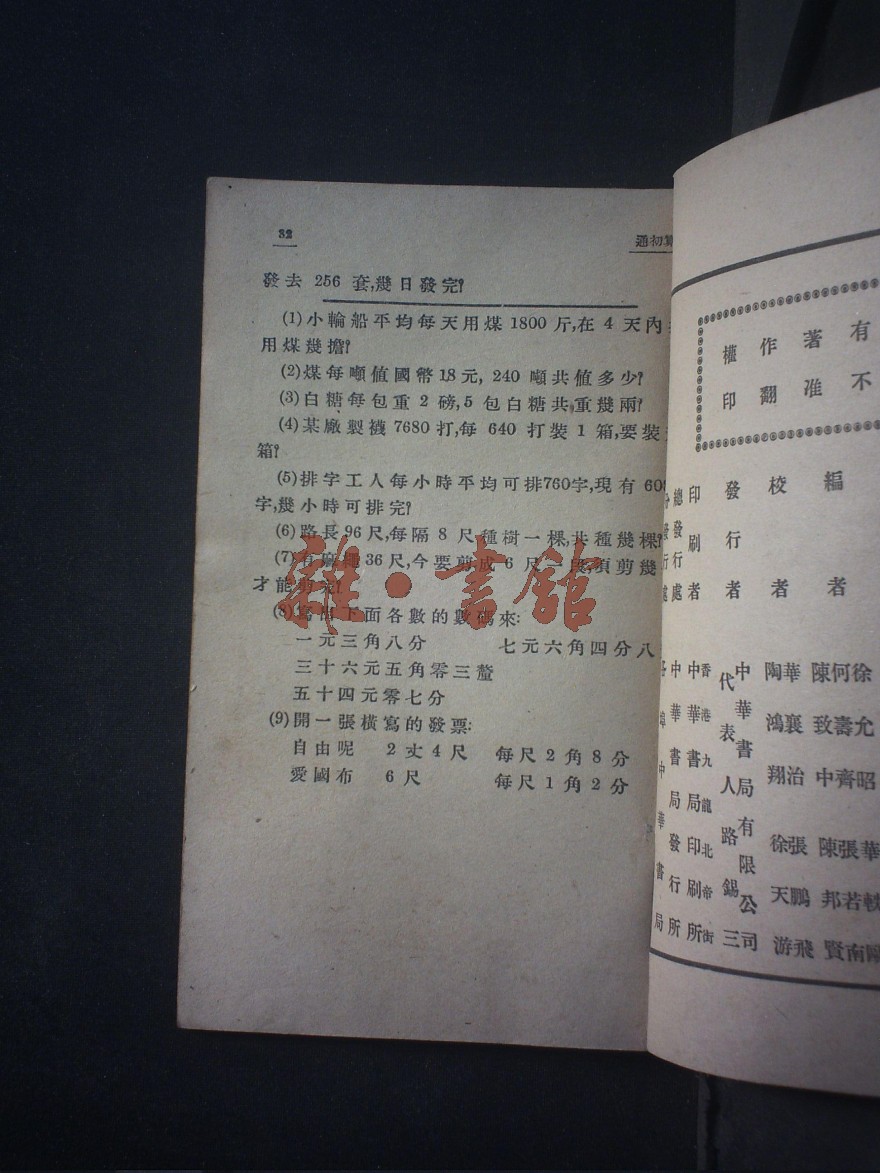 32
通初算
發去 256 套,幾日發完?
(1)小輪船平均每天用煤 1800 斤,在 4 天內
用煤幾擔?
(2)煤每噸值國幣18元, 240 噸共值多少?
(3)白糖每包重 2 磅,5 包白糖共重幾兩?
(4)某廠製襪 7680 打,每 640 打裝 1 箱,要裝
箱?
(5)排字工人每小時平均可排760字,現有
字,幾小時可排完?
(6)路長96尺,每隔 8 尺種樹一棵,共種幾棵?
(7)有麻繩36尺,今要剪成 6 尺一段,須剪幾
才能剪完?
(8)寫出下面各數的數碼來:
一元三角八分 七元六角四分八
三十六元五角零三釐
五十四元零七分
(9)開一張橫寫的發票:
自由呢 2 丈 4 尺 每尺 2 角 8 分
愛國布 6 尺 每尺 1 角 2 分
雜·書館
有著作權
不准翻印
編者 徐允昭 何壽齊 陳致中 華 張若南 陳邦賢
校者 華襄治 陶鴻翔 張鵬飛 徐天游
發行者 中華書局有限公司
代表人路錫三
印刷者 香港九龍北帝街
中華書局印刷所
總發行處 中華書局發行所
分發行處 各埠中華書局